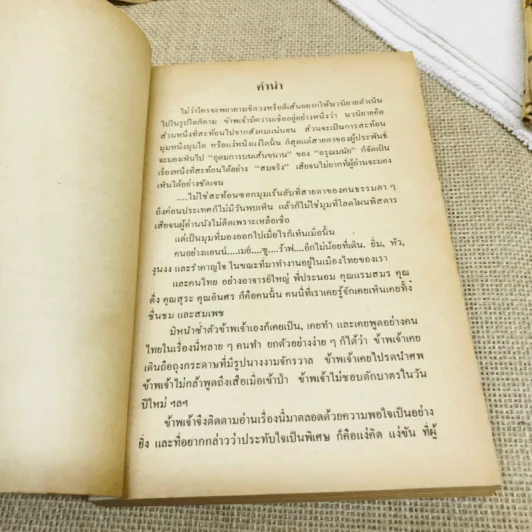 คำนำ
ไม่ว่าใครจะพยายามขีดวงหรือตีเส้นอยากให้นวนิยายดำเนิน
ไปในรูปใดก็ตาม ข้าพเจ้ามีความเชื่ออยู่อย่างหนึ่งว่า นวนิยายคือ
ส่วนหนึ่งที่สะท้อนไปจากสังคมแน่นอน ส่วนจะเป็นการสะท้อน
มุมหนึ่งมุมใด หรือแง่หนึ่งแง่ใดนั้น ก็สุดแต่สายตาของผู้ประพันธ์
จะมองเห็นไป "อุดมการบนเส้นขนาน" ของ "อรุฌมนัย" ก็จัดเป็น
เรื่องหนึ่งที่สะท้อนได้อย่าง "สมจริง" เสียจนไม่ยากที่ผู้อ่านจะมอง
เห็นได้อย่างชัดเจน
....ไม่ใช่สะท้อนซอกมุมเร้นลับที่สายตาของคนธรรมดา ๆ
ถึงค่อนประเทศก็ไม่มีวันพบเห็น แล้วก็ไม่ใช่มุมที่โลดโผนพิสดาร
เสียจนผู้อ่านนั่งไม่ติดเพราะเหลือเชื่อ
แต่เป็นมุมที่มองออกไปเมื่อไรก็เห็นเมื่อนั้น
คนอย่างแอนน์...เมย์...ซู...ร๊าฟ...อีกไม่น้อยที่เดิน, ยิ้ม, หัว,
งุนงง และรำคาญใจ ในขณะที่มาทำงานอยู่ในเมืองไทยของเรา
และคนไทย อย่างอาจารย์ใหญ่ พี่ประนอม คุณแรมสมร คุณ
ดึ๋ง คุณสุระ คุณอันศร ก็คือคนนั้น คนนี้ที่เราเคยรู้จักเคยเห็นเคยทั้ง
ชื่นชม และสมเพช
มิหนำซ้ำตัวข้าพเจ้าเองก็เคยเป็น, เคยทำ และเคยพูดอย่างคน
ไทยในเรื่องนี้หลาย ๆ คนทำ ยกตัวอย่างง่าย ๆ ก็ได้ว่า ข้าพเจ้าเคย
เดินถือถุงกระดาษที่มีรูปนางงามจักรวาล ข้าพเจ้าเคยไปรดน้ำศพ
ข้าพเจ้าไม่กล้าพูดถึงเสือเมื่อเข้าป่า ข้าพเจ้าไม่ชอบตักบาตรในวัน
ปีใหม่ ฯลฯ
ข้าพเจ้าจึงติดตามอ่านเรื่องนี้มาตลอดด้วยความพอใจเป็นอย่าง
ยิ่ง และที่อยากกล่าวว่าประทับใจเป็นพิเศษ ก็คือแง่คิด แง่ขัน ที่ผู้